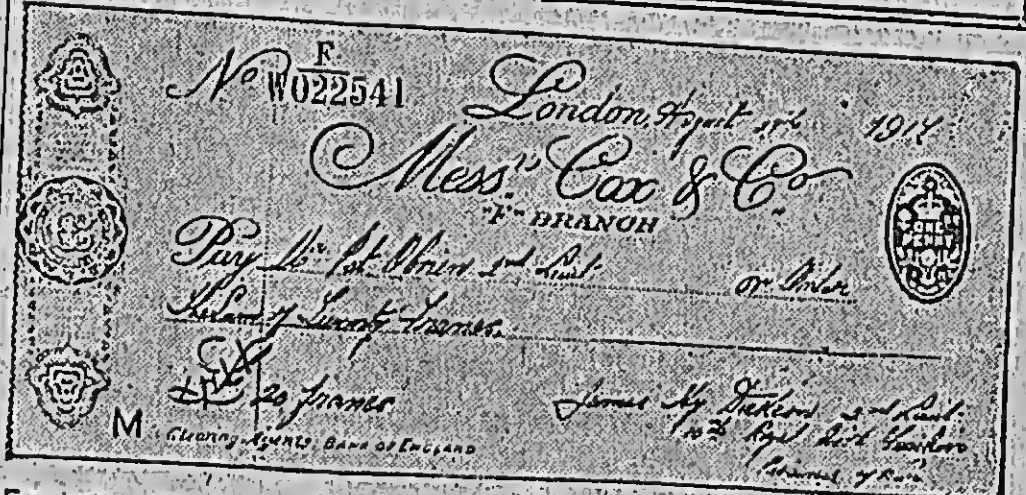 No F
W022541
London, August 1917
Messrs Cox & Co
"F" BRANCH
Pay Mr Pat Obrien 2nd Lieut. or Order
The Sum of Twenty Francs
£ 20 francs
James Hy Dickson 2nd Lieut.
10th Royal Irish
Prisoner of War
M
Clearing Agents, BANK OF ENGLAND
ONE PENNY